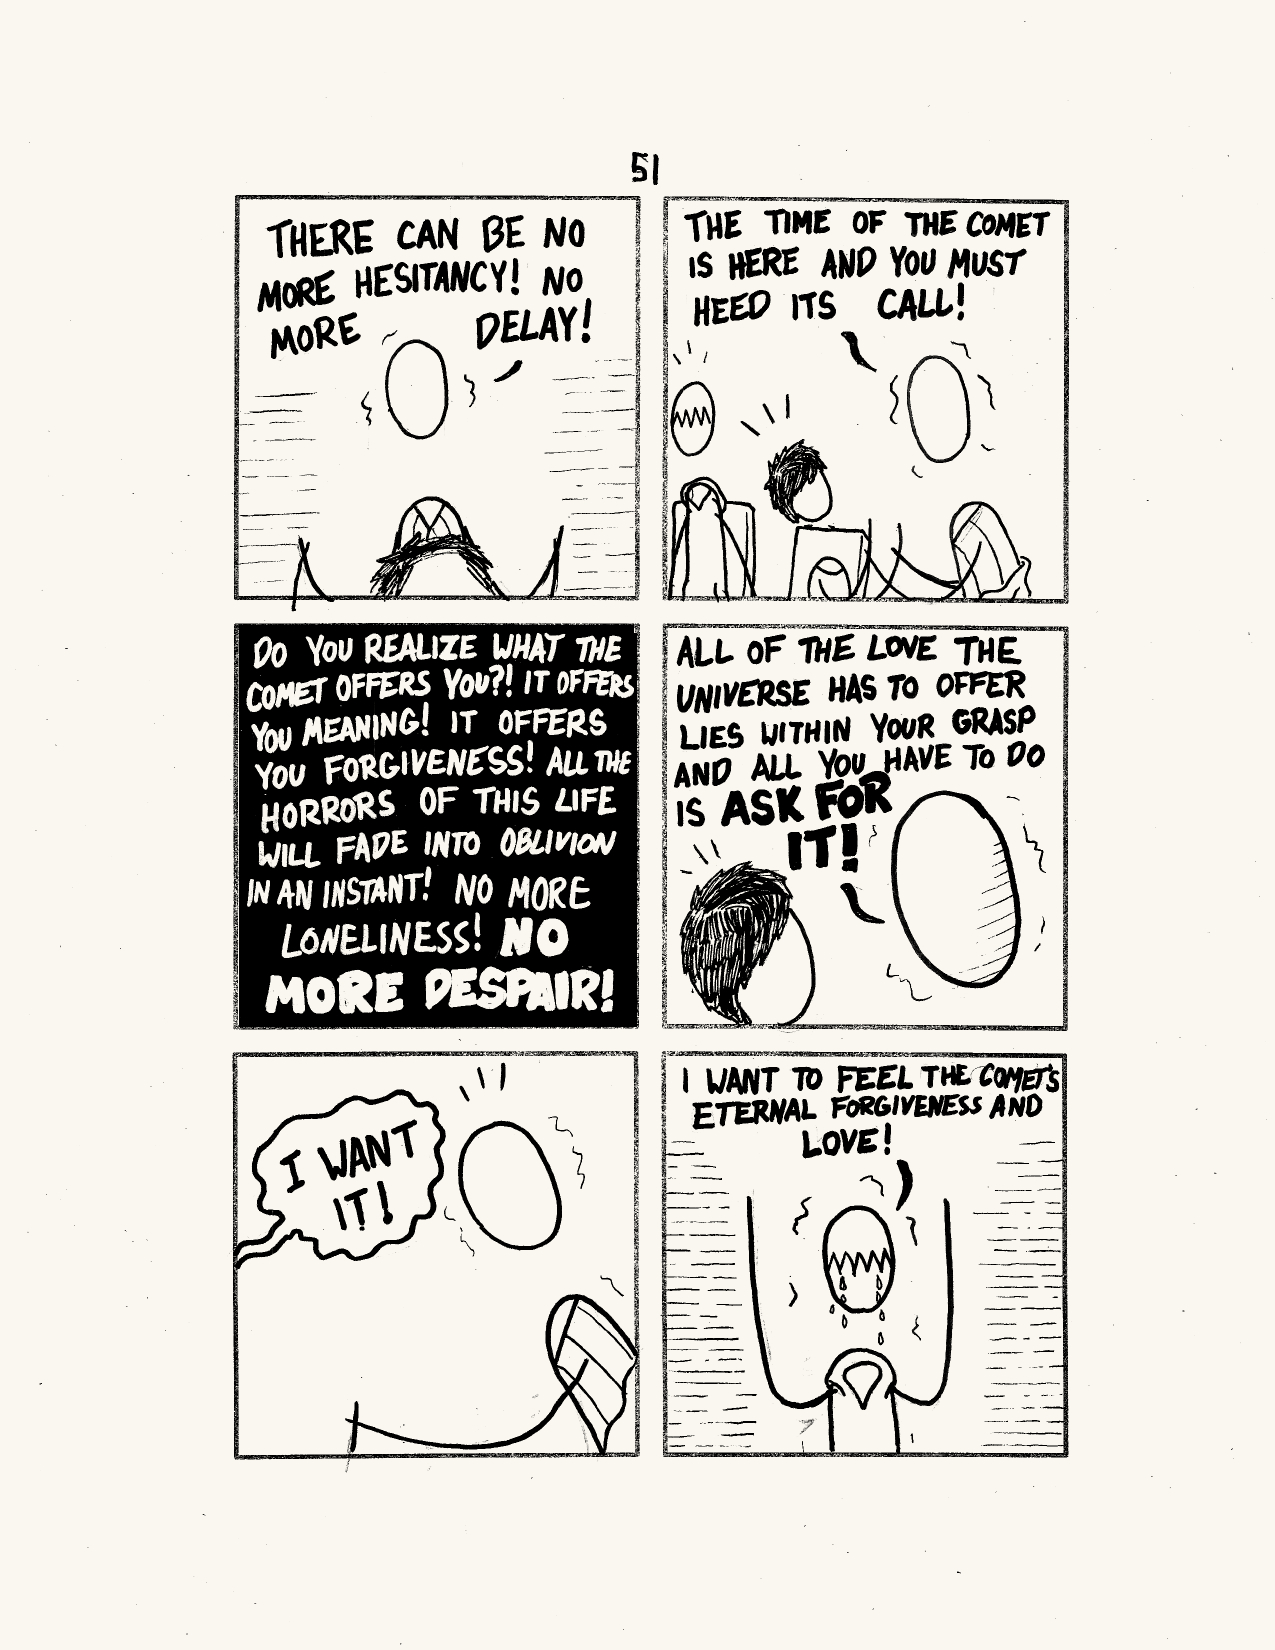 51
THERE CAN BE NO
MORE HESITANCY! NO
MORE DELAY!
THE TIME OF THE COMET
IS HERE AND YOU MUST
HEED ITS CALL!
DO YOU REALIZE WHAT THE
COMET OFFERS YOU?! IT OFFERS
YOU MEANING! IT OFFERS
YOU FORGIVENESS! ALL THE
HORRORS OF THIS LIFE
WILL FADE INTO OBLIVION
IN AN INSTANT! NO MORE
LONELINESS! NO
MORE DESPAIR!
ALL OF THE LOVE THE
UNIVERSE HAS TO OFFER
LIES WITHIN YOUR GRASP
AND ALL YOU HAVE TO DO
IS ASK FOR
IT!
I WANT
IT!
I WANT TO FEEL THE COMET'S
ETERNAL FORGIVENESS AND
LOVE!